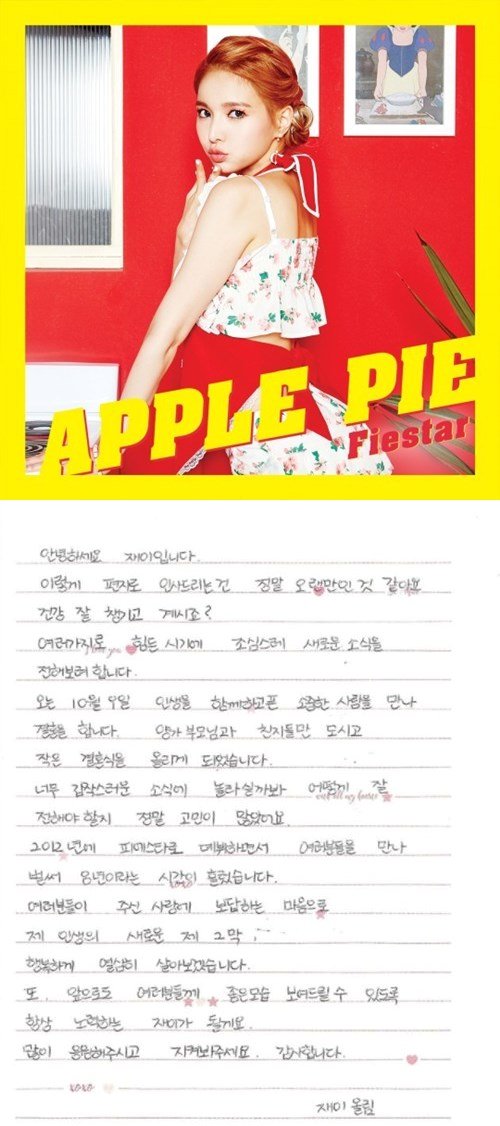 APPLE PIE
Fiestar
안녕하세요 재이입니다.
이렇게 편지로 인사드리는건 정말 오랜만인 것 같아요
건강 잘 챙기고 계시죠?
여러가지로 힘든 시기에 조심스레 새로운 소식을
전해보려 합니다.
오는 10월 9일 인생을 함께하고픈 소중한 사람을 만나
결혼을 합니다. 양가 부모님과 친지들만 모시고
작은 결혼식을 올리게 되었습니다.
너무 갑작스러운 소식에 놀라실까봐 어떻게 잘
전해야 할지 정말 고민이 많았어요
2012년에 피에스타로 데뷔하면서 여러분들을 만나
벌써 8년이라는 시간이 흘렀습니다.
여러분들이 주신 사랑에 보답하는 마음으로
제 인생의 새로운 제 2막,
행복하게 열심히 살아보겠습니다.
또, 앞으로도 여러분들께 좋은모습 보여드릴 수 있도록
항상 노력하는 재이가 될게요.
많이 응원해주시고 지켜봐주세요. 감사합니다.
xoxo
재이 올림